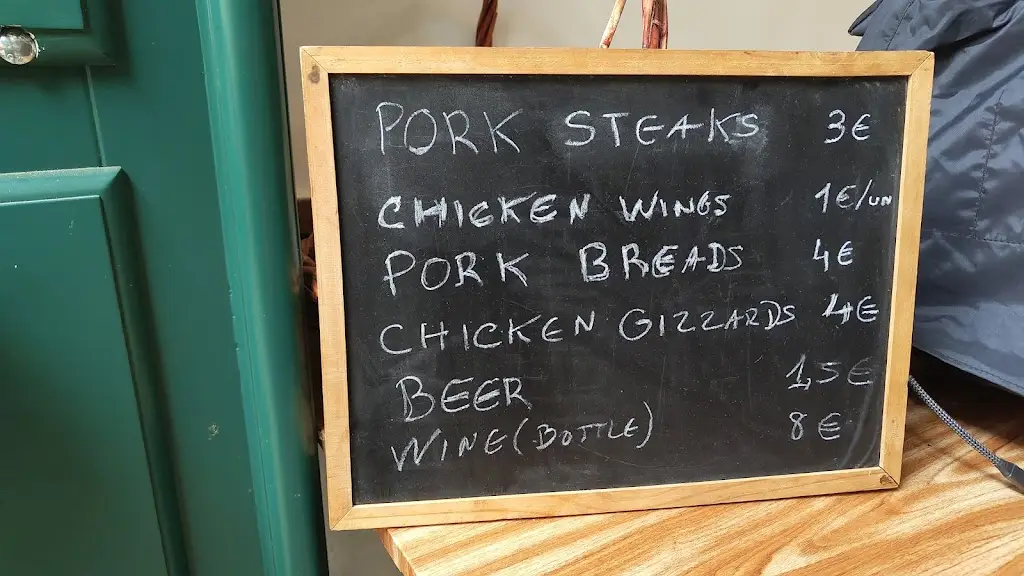 PORK STEAKS 3€
CHICKEN WINGS 1€/UN
PORK BREADS 4€
CHICKEN GIZZARDS 4€
BEER 1,5€
WINE (BOTTLE) 8€